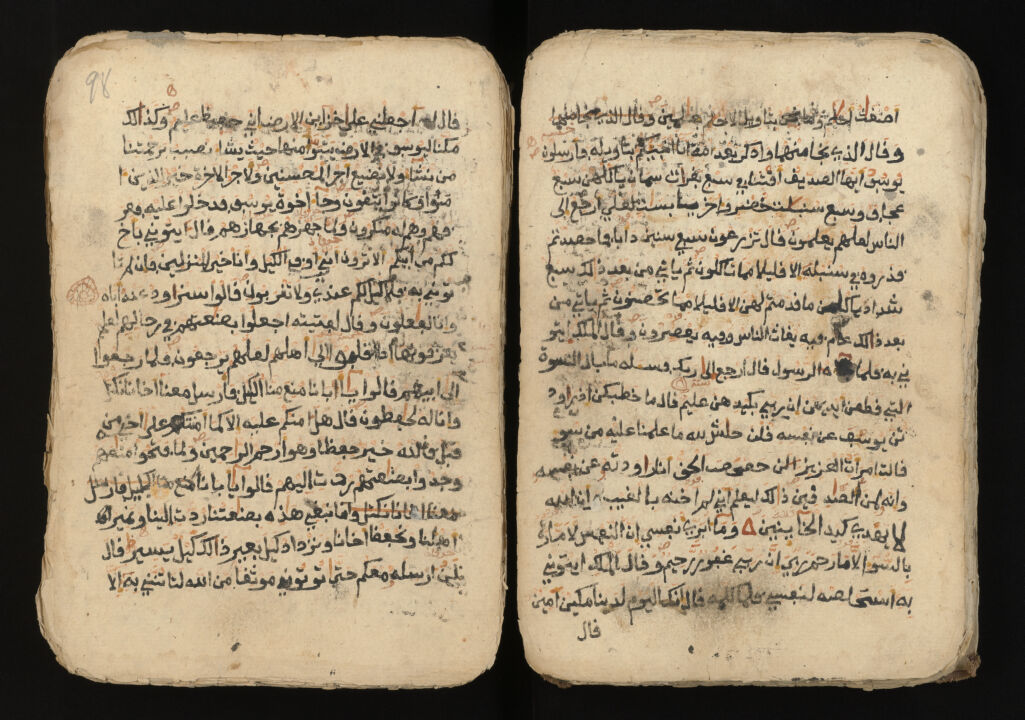 اضغث احلم وما نحن بتاويل الاحلم بعلمين وقال الذي نجا منهما
وقال الذي نجا منهما وادكر بعد امة انا انبيكم بتاويله فارسلون
يوسف ايها الصديق افتنا في سبع بقرات سمان ياكلهن سبع
عجاف وسبع سنبلت خضر واخر يابست لعلي ارجع الى
الناس لعلهم يعلمون قال تزرعون سبع سنين دابا فما حصدتم
فذروه في سنبله الا قليلا مما تاكلون ثم ياتي من بعد ذلك سبع
شداد ياكلن ما قدمتم لهن الا قليلا مما تحصنون ثم ياتي من
بعد ذلك عام فيه يغاث الناس وفيه يعصرون وقال الملك ايتو
ني به فلما جاءه الرسول قال ارجع الى ربك فسله ما بال النسوة
التي قطعن ايديهن ان ربي بكيدهن عليم قال ما خطبكن اذ راود
تن يوسف عن نفسه قلن حش لله ما علمنا عليه من سو
قالت امرات العزيز الن حصحص الحق انا راودته عن نفسه
وانه لمن الصدقين ذلك ليعلم اني لم اخنه بالغيب وان الله
لا يهدي كيد الخاينين وما ابري نفسي ان النفس لامارة
بالسو الا ما رحم ربي ان ربي غفور رحيم وقال الملك ايتوني
به استخلصه لنفسي فلما كلمه قال انك اليوم لدينا مكين امين
قال
98
قال اجعلني على خزاين الارض اني حفيظ عليم وكذلك
مكنا ليوسف في الارض يتبوا منها حيث يشا نصيب برحمتنا
من نشا ولا نضيع اجر المحسنين ولاجر الاخرة خير للذين ا
منوا وكانوا يتقون وجا اخوة يوسف فدخلوا عليه فعر
فهم وهم له منكرون ولما جهزهم بجهازهم قال ايتوني باخ
لكم من ابيكم الا ترون اني اوفي الكيل وانا خير المنزلين فان لم تا
توني به فلا كيل لكم عندي ولا تقربون قالوا سنراود عنه اباه
وانا لفعلون وقال لفتيته اجعلوا بضعتهم في رحالهم لعلهم
يعرفونها اذا انقلبوا الى اهلهم لعلهم يرجعون فلما رجعوا
الى ابيهم قالوا يابانا منع منا الكيل فارسل معنا اخانا نكتل
وانا له لحفظون قال هل امنكم عليه الا كما امنتكم على اخيه من
قبل فالله خير حفظا وهو ارحم الرحمين ولما فتحوا متعهم
وجدوا بضعتهم ردت اليهم قالوا يابانا منع منا الكيل فارسل
معنا اخانا نكتل ما نبغي هذه بضعتنا ردت الينا ونمير
اهلنا ونحفظ اخانا ونزداد كيل بعير ذلك كيل يسير قال
لن ارسله معكم حتى توتون موثقا من الله لتاتنني به الا